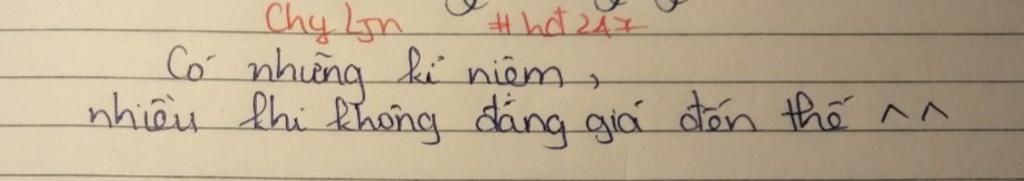 Chy Ljn #hđ 247
Có những kỉ niệm,
nhiều khi không đáng giá đến thế ^^